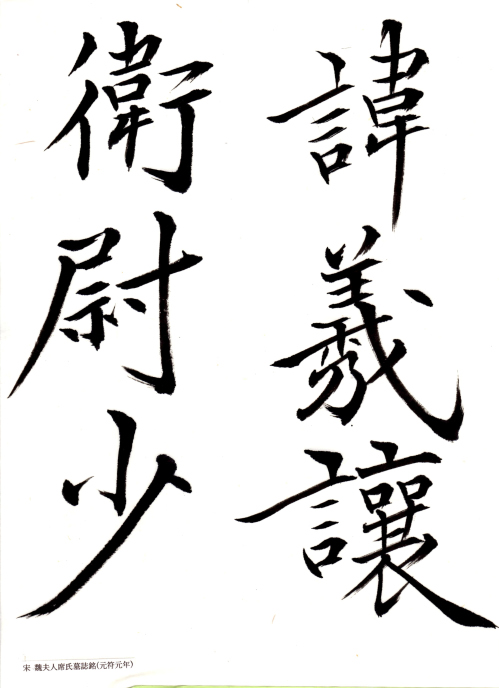 諱羲讓
衛尉少
宋 魏夫人席氏墓誌銘(元符元年)